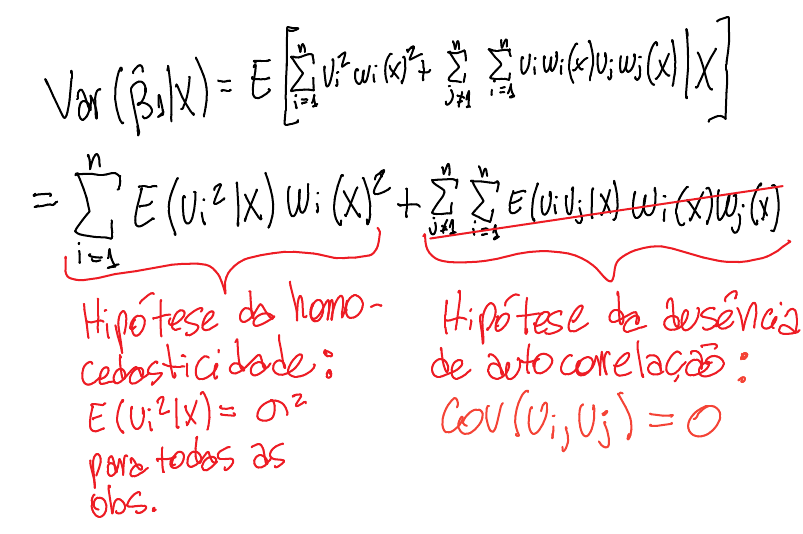 Var(β̂₁|X) = E[∑ⁿᵢ₌₁ Uᵢ² wᵢ(x)² + ∑ⁿⱼ≠₁ ∑ⁿᵢ₌₁ Uᵢ wᵢ(x) Uⱼ wⱼ(x) | X]
= ∑ⁿᵢ₌₁ E(Uᵢ²|X) wᵢ(x)² + ∑ⁿⱼ≠₁ ∑ⁿᵢ₌₁ E(UᵢUⱼ|X) wᵢ(x) wⱼ(x)
Hipótese da homo-
cedasticidade:
E(Uᵢ²|X) = σ²
para todas as
obs.
Hipótese da ausência
de autocorrelação:
COV(Uᵢ, Uⱼ) = 0